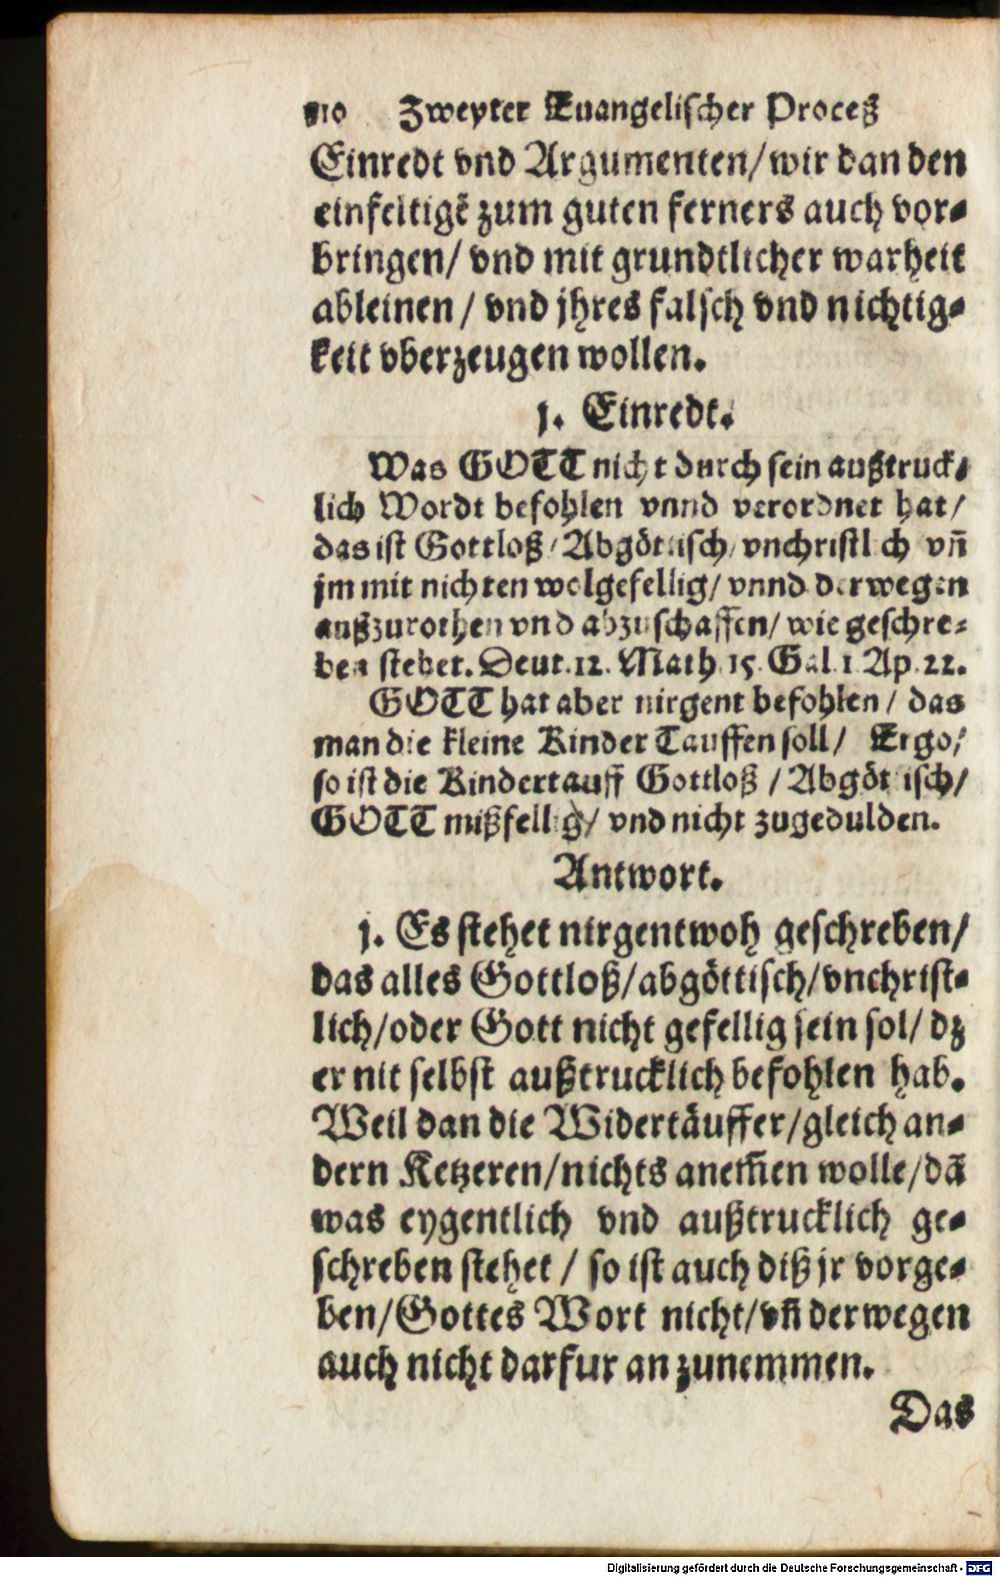 Zweyter Euangelischer Proceß
Einredt vnd Argumenten/wir dan den
einfeltigē zum guten ferners auch vor-
bringen/ vnd mit grundtlicher warheit
ableinen / vnd jhres falsch vnd nichtig-
keit vberzeugen wollen.
j. Einredt.
Was GOTT nicht durch sein außtruck-
lich Wordt befohlen vnnd verordnet hat/
das ist Gottloß/Abgöttisch/vnchristlich vñ
jm mit nichten wolgefellig/ vnnd derwegen
außzurothen vnd abzuschaffen/ wie geschre-
ben stehet. Deut.12. Math 15. Gal 1 Ap. 22.
GOTT hat aber nirgent befohlen / das
man die kleine Kinder Tauffen soll/ Ergo/
so ist die Kindertauff Gottloß / Abgöttisch/
GOTT mißfellig/ vnd nicht zugedulden.
Antwort.
j. Es stehet nirgentwoh geschreben/
das alles Gottloß/abgöttisch/vnchrist-
lich/oder Gott nicht gefellig sein sol/ dz
er nit selbst außtrucklich befohlen hab.
Weil dan die Widertäuffer/gleich an-
dern Ketzeren/nichts anem̄en wolle/dā
was eygentlich vnd außtrucklich ge-
schreben stehet / so ist auch diß jr vorge-
ben/Gottes Wort nicht/vñ derwegen
auch nicht darfur an zunemmen.
Das
Digitalisierung gefördert durch die Deutsche Forschungsgemeinschaft - DFG